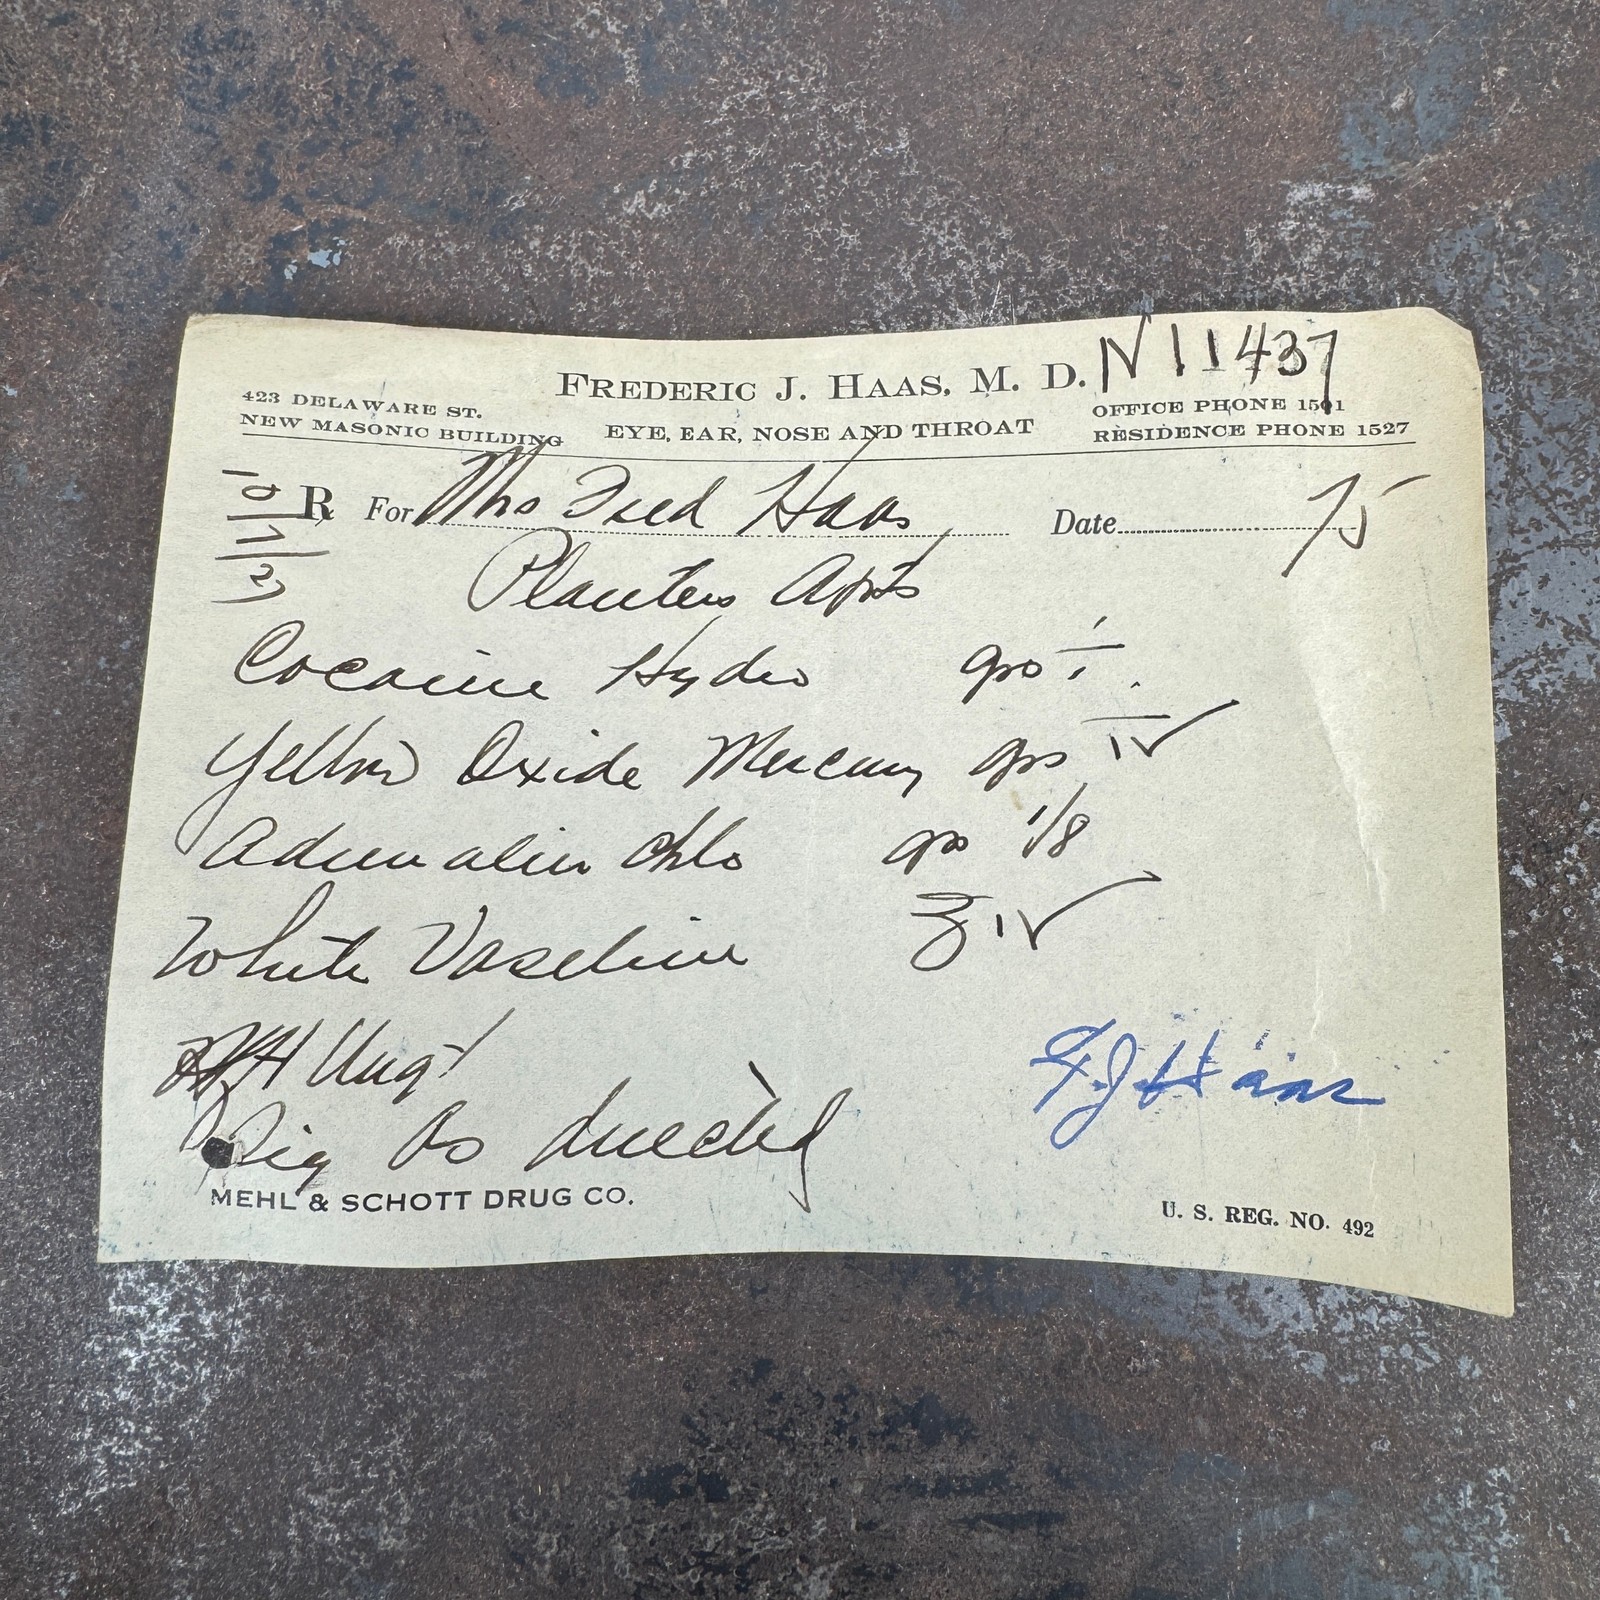 N 11437
FREDERIC J. HAAS, M. D.
423 DELAWARE ST.
NEW MASONIC BUILDING
EYE, EAR, NOSE AND THROAT
OFFICE PHONE 1501
RESIDENCE PHONE 1527
10/7/27
R For Mrs Fred Haas Date 75
Planters Apts
Cocaine Hydro grs i
Yellow Oxide Mercury grs iv
Adrenalin Chlo grs 1/8
White Vaseline ʒ iv
Ungt
F. J. Haas
Sig As directed
MEHL & SCHOTT DRUG CO.
U. S. REG. NO. 492